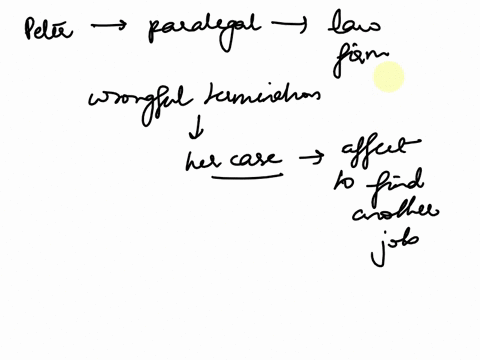 Peter → paralegal → law
firm
wrongful termination
↓
her case → affect
to find
another
job